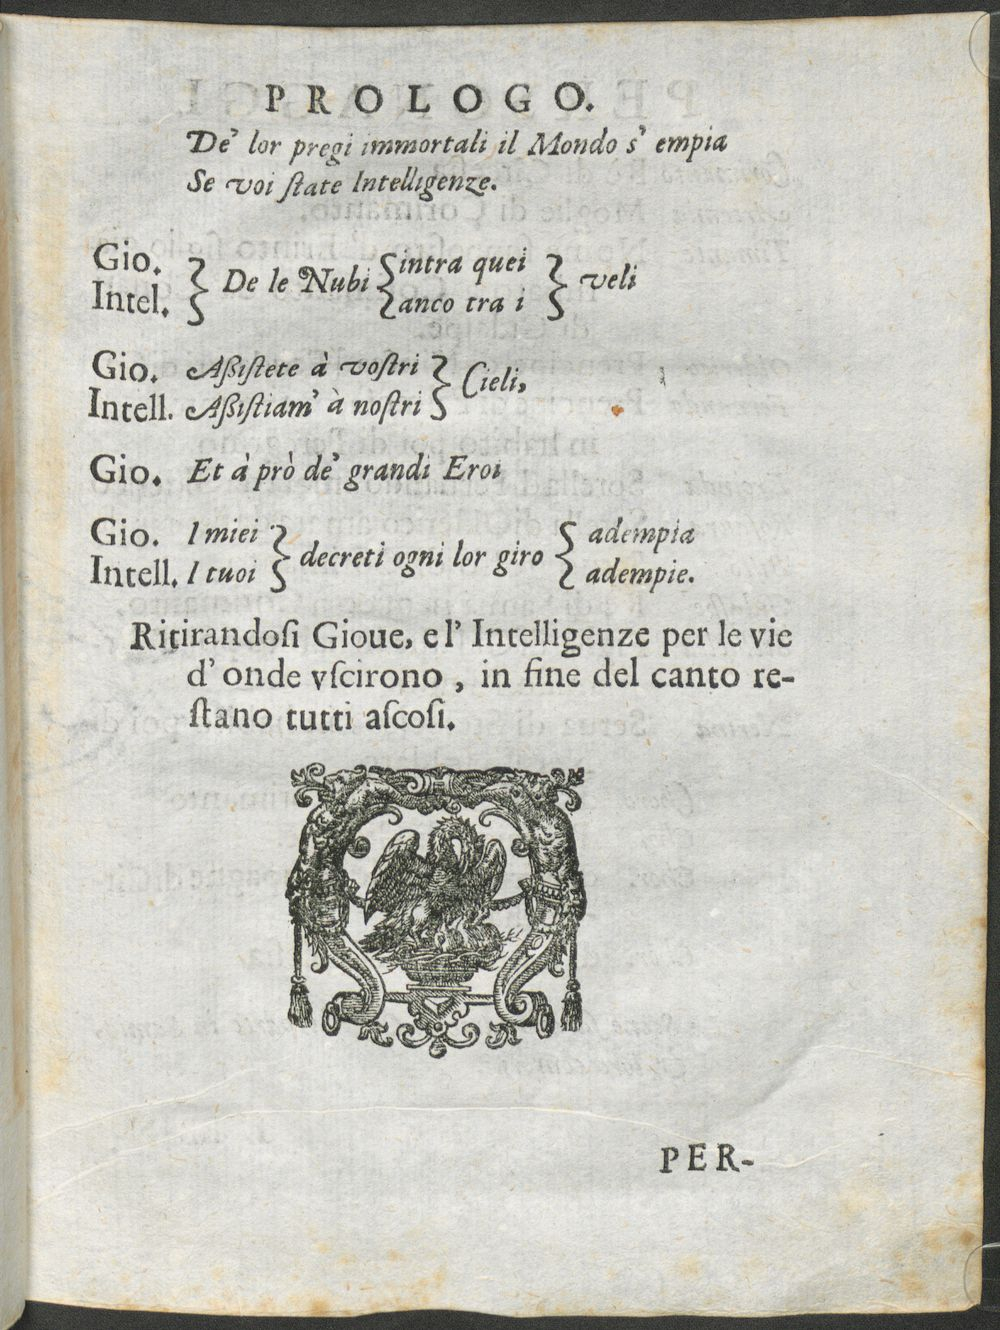 PROLOGO.
De' lor pregi immortali il Mondo s' empia
Se voi ſtate Intelligenze.
Gio. } De le Nubi { intra quei } veli
Intel. } { anco tra i }
Gio. Aßiſtete à voſtri } Cieli,
Intell. Aßiſtiam' à noſtri }
Gio. Et à prò de' grandi Eroi
Gio. I miei } decreti ogni lor giro { adempia
Intell. I tuoi } { adempie.
Ritirandoſi Gioue, e l' Intelligenze per le vie
d' onde vſcirono, in fine del canto re-
ſtano tutti aſcoſi.
PER-